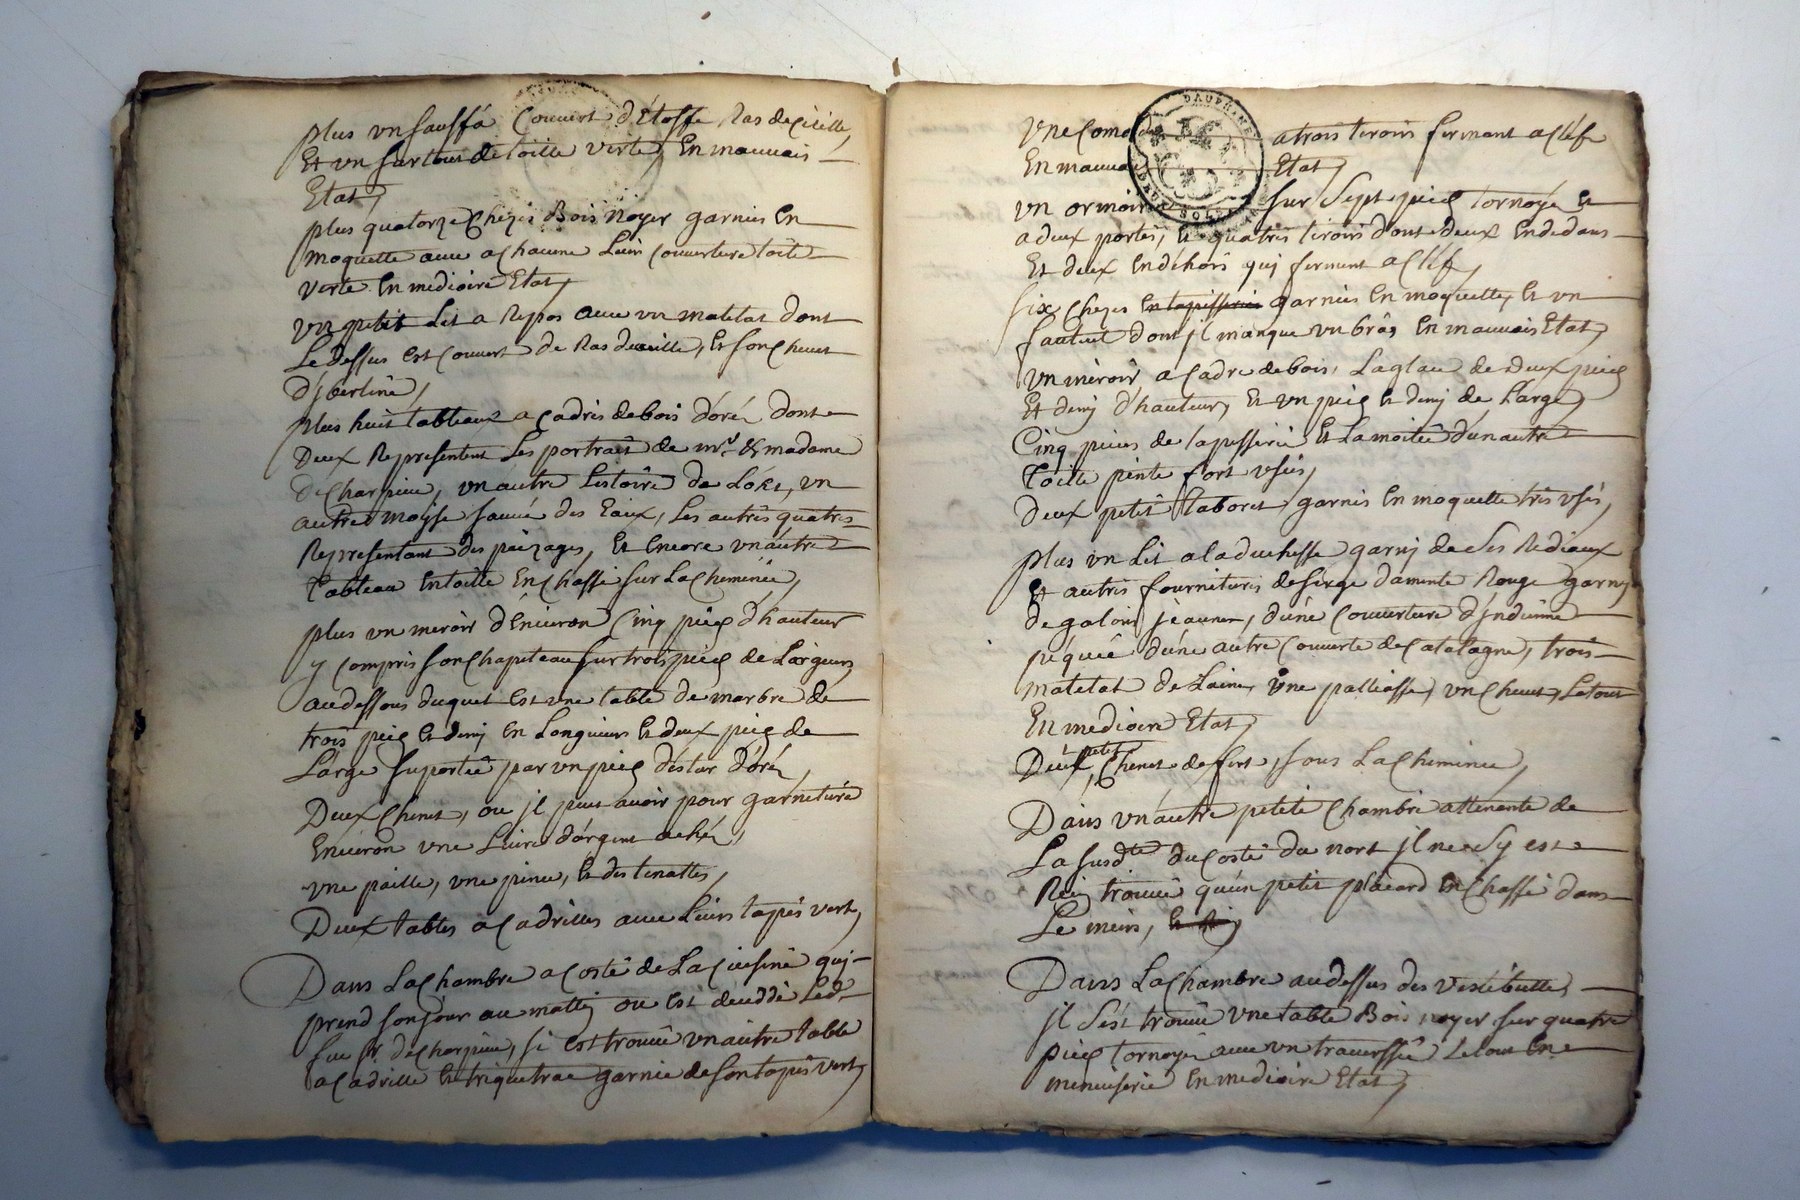 plus vn sauffá Couuert d'Étoffe Ras de Cicille,
Et vn surtout de toille verte, En mauuais
Etat,
plus quatorze Chezes Bois Noyer garnies En
moquette auec a chacune Leurs Couuerture toile
verte En medioire Etat,
vn petit Lit a Repos auec vn matelat dont
Le dessus est couuert de Ras de cicille, Et son Cheuet
plus huit tableaux a Cadres de bois d'oré dont
Deux Representent Les portrait de mr. & madame
de Charpieu, vn autre L'istoire de Lóth, vn
autre moyse sauué des Eaux, Les autres quatres
Representant des peizages, Et Encore vn autre
Tableau En toille En Chassé sur La Cheminée,
plus vn meroir d'Enuiron Cinq piés d'hauteur
y compris son Chapiteau sur trois piés de Largeur,
au dessous duquel est vne table de marbre de
trois piés Et demy en Longueur Et deux piés de
Large suportée par vn pied d'estal d'oré,
Deux Chenet, ou jl peut auoir pour garneture
Enuiron vne Liure d'argent aché,
vne paille, vne pince, Et des tenattes,
Deux tables a Cadrilles auec Leurs tapis vert,
Dans La Chambre a Costé de La Cuisine quj
prend son jour au matin ou est deuddé Led.
feu sr. de Charpieu, si est trouué vn autre table
a Cadrille Et triquetrac garnie de son tapis vert,
vne Comode a trois tiroirs fermant a Clef
En mauuais Etat,
vn ormoire sur Sept piés tornoyé Et
a deux portes, Et quatres tiroirs dont deux En dedans
Et deux En déhors quj ferment a Clef,
six Chezes En tapisserie garnies En moquette, Et vn
fauteuil dont jl manque vn bras En mauuais Etat,
vn meroir a Cadre de bois, La glace de Deux piés
Et demj d'hauteur, Et vn pied Et demj de Large,
Cinq pieces de tapisserie Et La moitié d'un autre
Toille pinte fort vsés,
Deux petit taboret garnis En moquette tres vsés,
plus vn Lit a la duchesse garnj de Ses Rediaux
Et autres fournitures de sirge d'amente Rouge garnj
de galons jéaunes, d'une Couuerture d'jndienne
piquée d'une autre Couuerte de Catalagne, trois
matelat de Laine, vne palliasse, vn Cheuet, Le tout
En medioire Etat,
Deux petits Chenet de fert, sous La Cheminée,
Dans vn autre petite Chambre attenente de
La susdte du Costé du nort jl ne s'y est
Rien trouué qu'un petit placard En Chassé dans
Le meurs, Et si
Dans La Chambre au dessus des Vestibulle,
jl s'est trouué vne table Bois noyer sur quatre
piés tornoyer auec vn trauerssié Le tout En
menuiserie En medioire Etat,
DAUPHINE